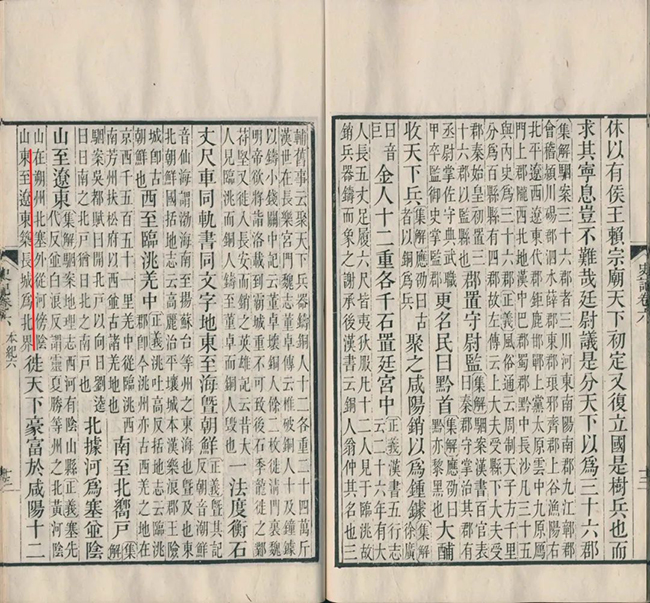 休以有侯王賴宗廟天下初定又復立國是樹兵也而
求其寧息豈不難哉廷尉議是分天下以爲三十六郡
集解駰案三十六郡者三川河東南陽南郡九江鄣郡
會稽潁川碭郡泗水薛郡東郡琅邪齊郡上谷漁陽右
北平遼西遼東代郡鉅鹿邯鄲上黨太原雲中九原鴈
門上郡隴西北地漢中巴郡蜀郡黔中長沙凡三十五
與內史爲三十六郡正義風俗通云周制天子方千里
分爲百縣縣有四郡故左傳云上大夫受縣下大夫受
郡秦始皇初置三十六郡以監縣也郡置守尉監集解駰案漢書百官表曰秦郡守掌治其郡有
丞尉掌佐守典武職甲卒監御史掌監郡更名民曰黔首集解應劭曰黔亦黎黑也大酺
收天下兵集解應劭曰古者以銅爲兵聚之咸陽銷以爲鍾鐻集解徐廣
曰音巨金人十二重各千石置廷宮中正義漢書五行志云二十六年有大
人長五丈足履六尺皆夷狄服凡十二人見于臨洮故
銷兵器鑄而象之謝承後漢書云銅人翁仲其名也三
史記卷六
十二
輔舊事云聚天下兵器鑄銅人十二各重二十四萬斤
漢世在長樂宮門魏志董卓傳云椎破銅人十及鍾鐻
以鑄小錢關中記云董卓壞銅人餘二枚徙清門裏魏
明帝欲將詣洛載到霸城重不可致後石季龍徙之鄴
苻堅又徙入長安而銷之英雄記云昔大人見臨洮而銅人鑄至董卓而銅人毀也一法度衡石
丈尺車同軌書同文字地東至海暨朝鮮正義暨其記反朝音潮鮮
音仙海謂渤海南至揚蘇台等州之東海也暨及也東
北朝鮮國括地志云高麗治平壤城本漢樂浪郡王險
城即古朝鮮也西至臨洮羌中正義洮吐高反括地志云臨洮郡即今洮州亦古西羌之地在
京西千五百五十一里羌中從臨洮西南芳州扶松府以西並古諸羌地也南至北嚮戶集解
駰案吳都賦曰開北戶以向日劉逵曰日南之北戶猶日北之南戶也北據河爲塞並陰
山至遼東集解駰案地理志西河有陰山縣正義塞先代反並白浪反謂靈夏勝等州之北黃河陰
山在朔州北塞外從河傍陰山東至遼東築長城爲北界徙天下豪富於咸陽十二
本紀六